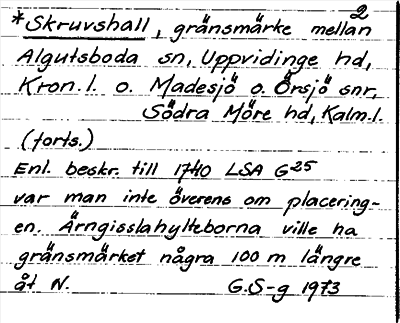 2
*Skruvshall, gränsmärke mellan
Algutsboda sn, Uppvidinge hd,
Kron. l. o. Madesjö o. Örsjö snr,
Södra Möre hd, Kalm. l.
(forts.)
Enl. beskr. till 1740 LSA G25
var man inte överens om placering-
en. Ärngisslahylteborna ville ha
gränsmärket några 100 m längre
åt N. G.S-g 1973